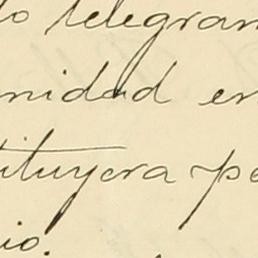 to telegram
nidad en
tituyera pe
io.